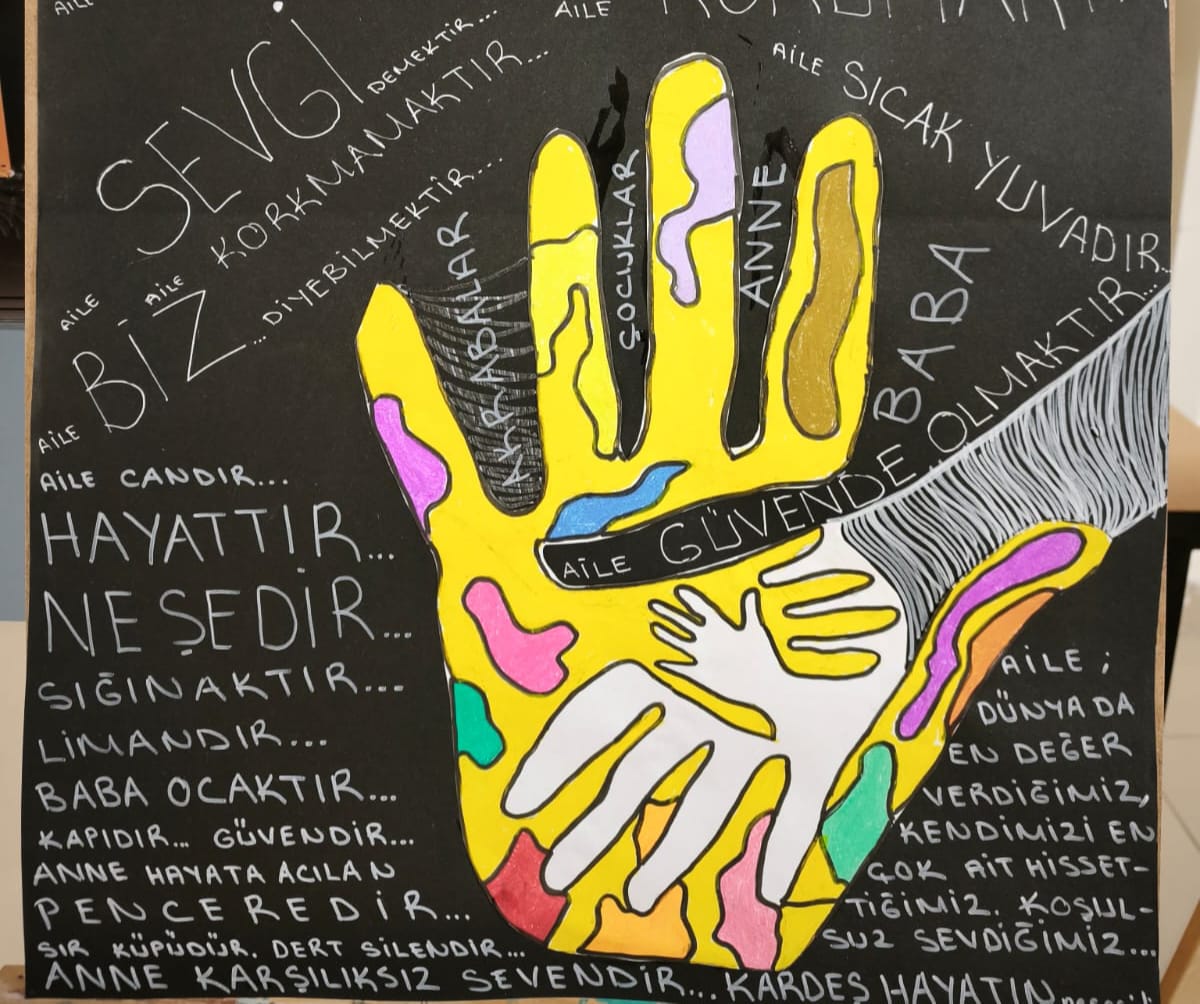 AİLE
SEVGİ DEMEKTİR...
AİLE
AİLE KORKMAMAKTIR...
AİLE
BİZ ...DİYEBİLMEKTİR...
AİLE SICAK YUVADIR...
AKRABALAR
ÇOCUKLAR
ANNE
BABA
AİLE GÜVENDE OLMAKTIR...
AİLE
AİLE CANDIR...
HAYATTIR...
NEŞEDİR...
SIĞINAKTIR...
LİMANDIR...
BABA OCAKTIR...
KAPIDIR... GÜVENDİR...
ANNE HAYATA ACILAN
PENCEREDİR...
SIR KÜPÜDÜR. DERT SİLENDİR...
ANNE KARŞILIKSIZ SEVENDİR... KARDEŞ HAYATIN
AİLE ;
DÜNYADA
EN DEĞER
VERDİĞİMİZ,
KENDİMİZİ EN
ÇOK AİT HİSSET-
TİĞİMİZ. KOŞUL-
SUZ SEVDİĞİMİZ...